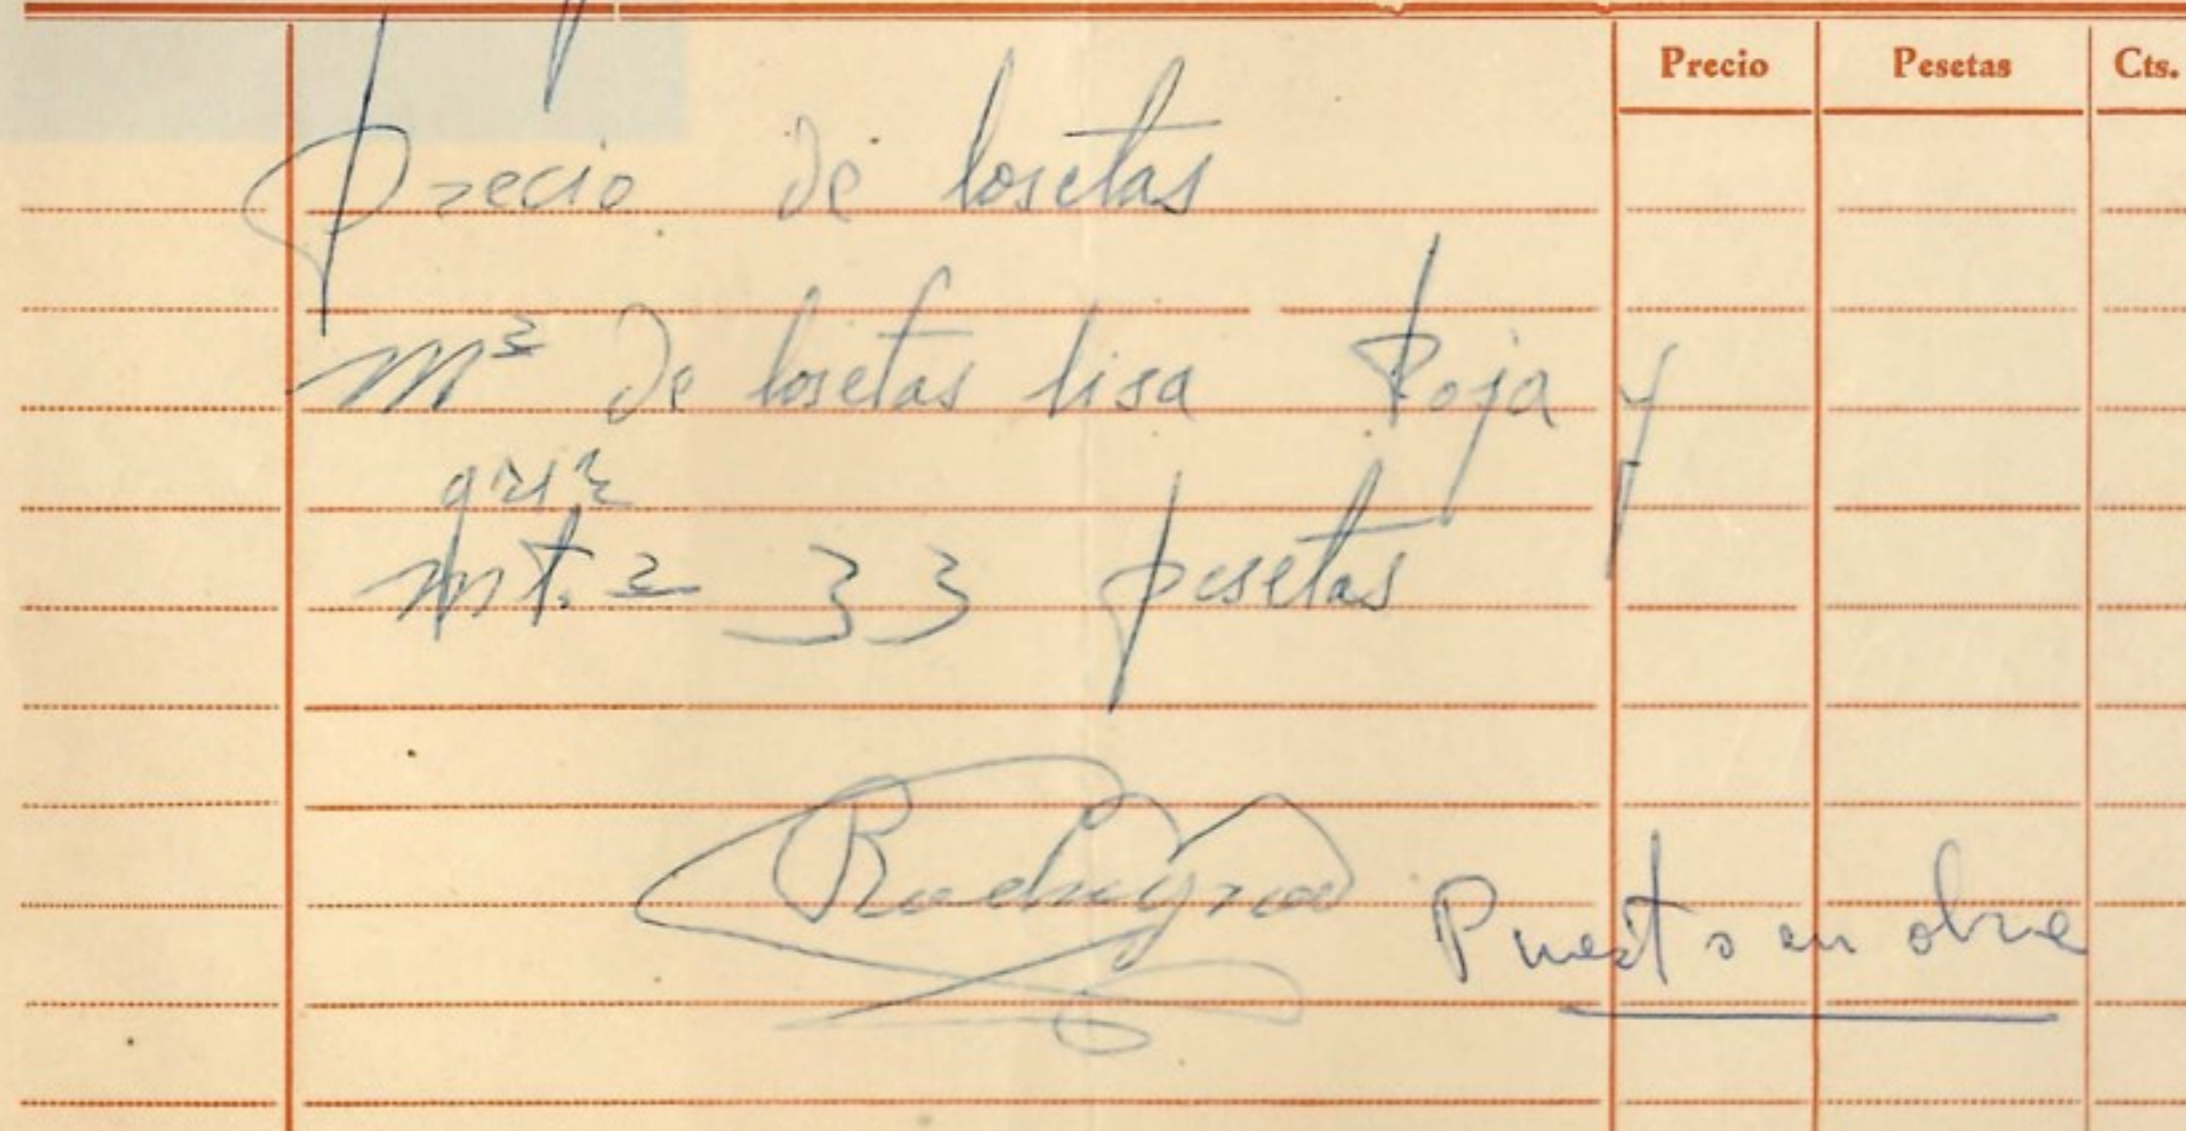 Precio Pesetas Cts.
Precio de losetas
m² de losetas lisa Roja y
gris
mt. 2 33 pesetas
Puesto en obra